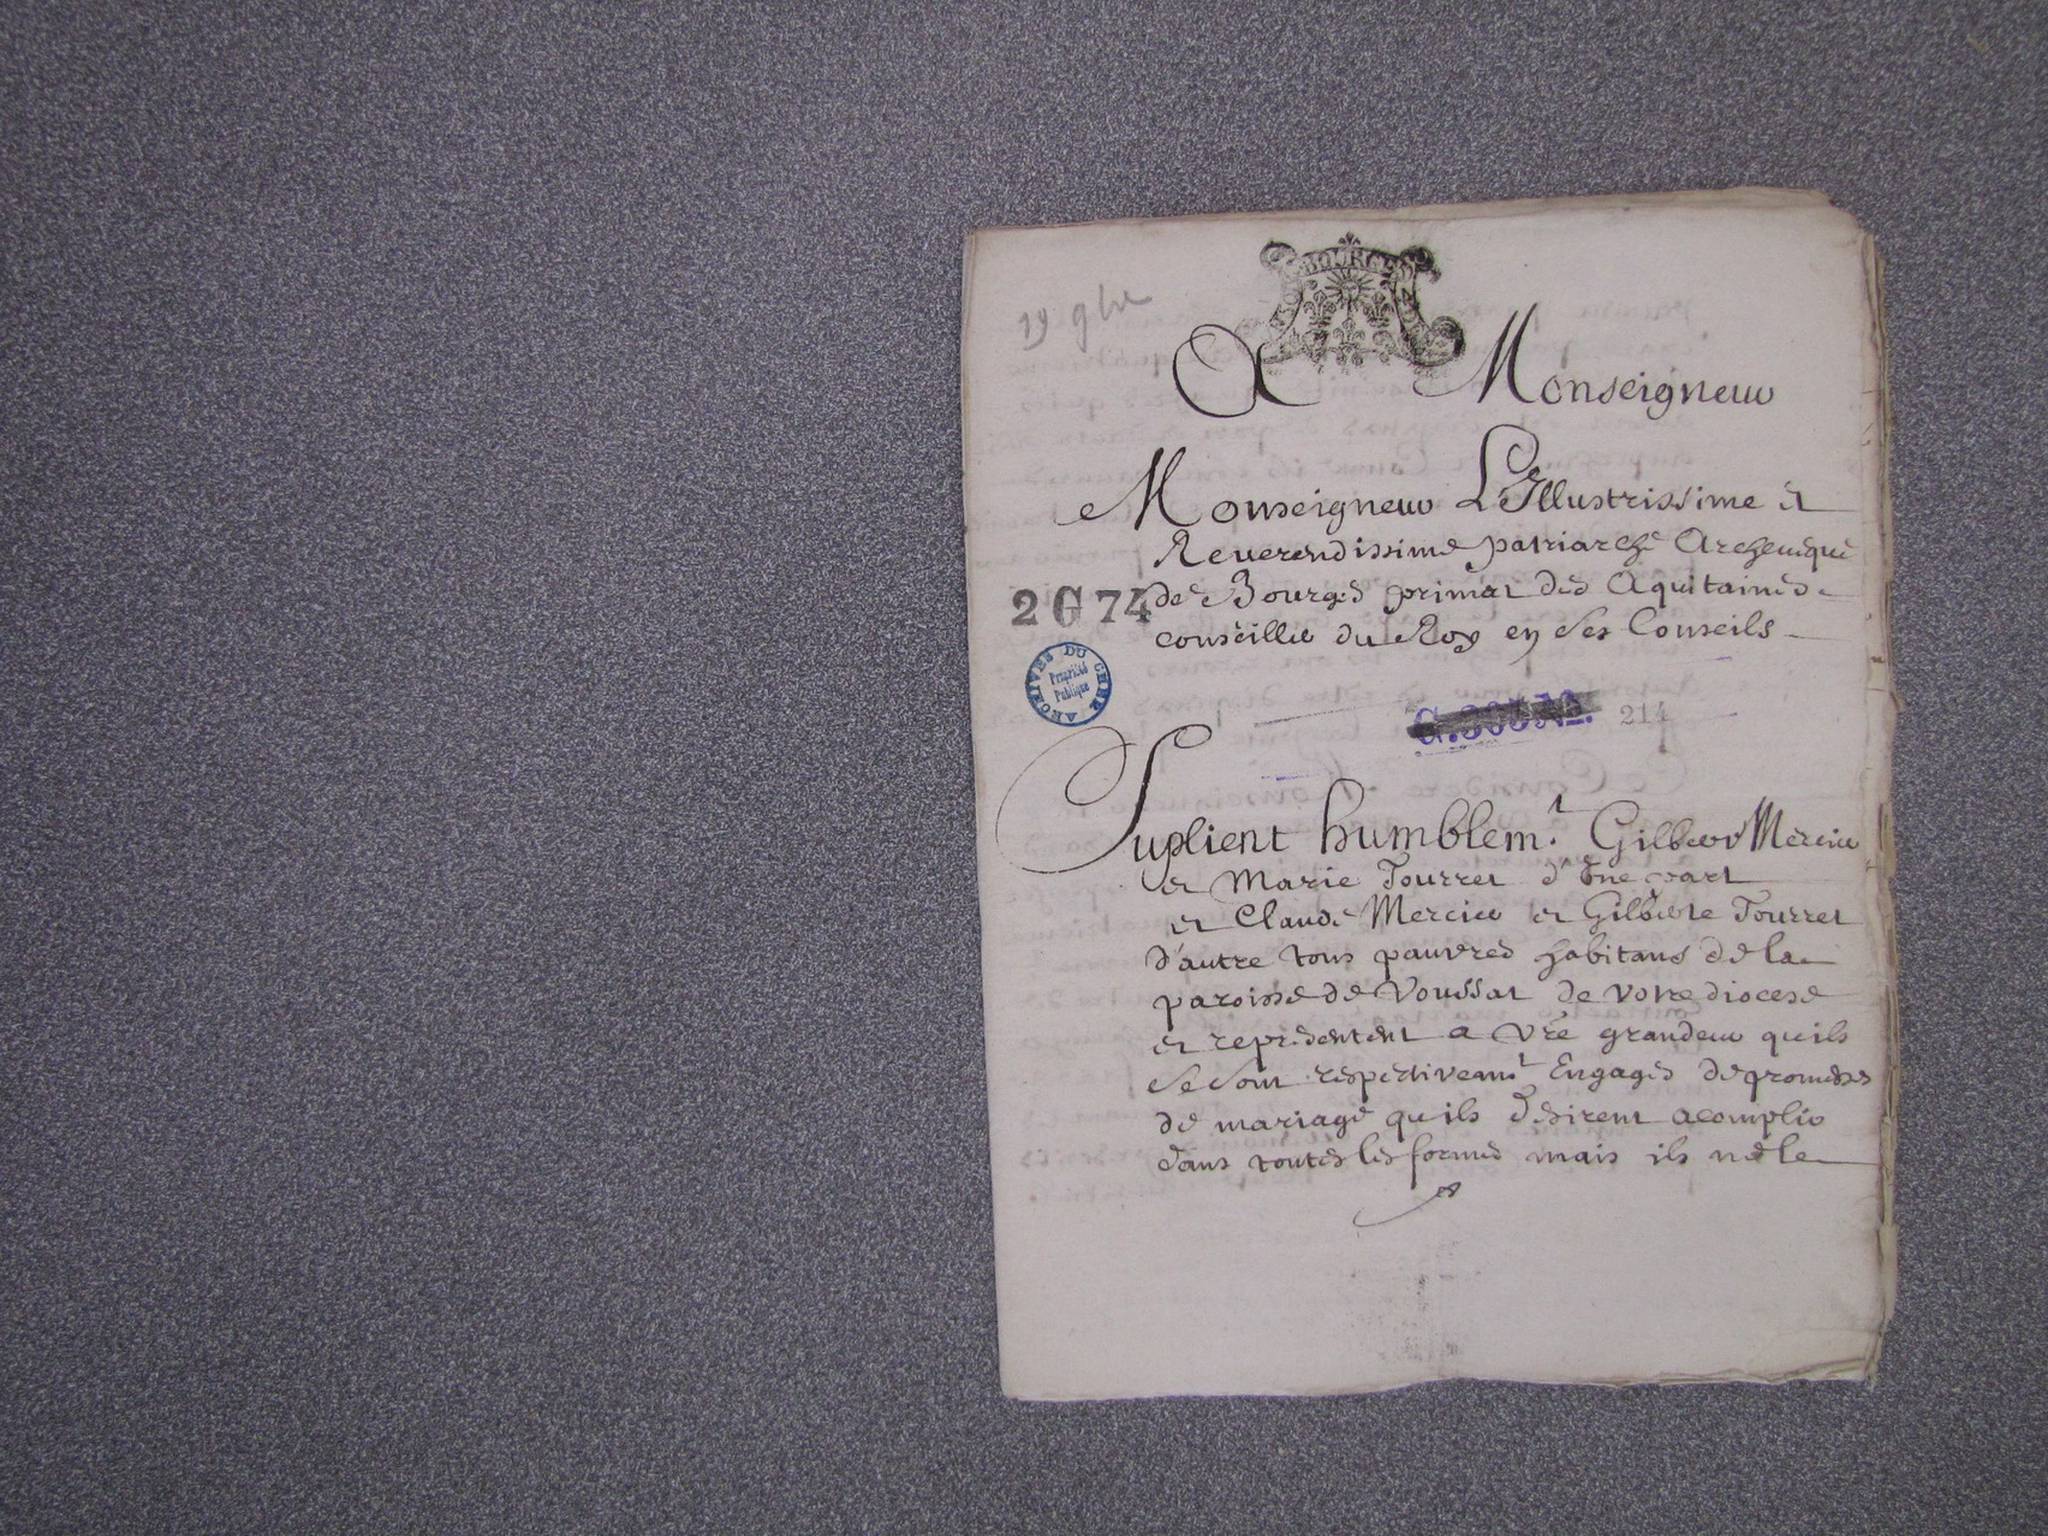 19 9bre
BOURGES
A Monseigneur
Monseigneur L'Illustrissime et
Reverendissime patriarche Archeuêque
de Bourges primat des Aquitaines
conseiller du Roy en ses Conseils
2 G 74
ARCHIVES DU CHER
Propriété
Publique
214
Suplient humblemt. Gilbert Mercier
et Marie Tourret d'Une part
et Claude Mercier et Gilberte Tourret
d'autre tous pauvres habitans de la
paroisse de Voussat de votre diocese
et representent a Vre grandeur quils
se sont respectivemt Engagés de promesses
de mariage quils desirent acomplir
dans toutes les formes mais ils ne le